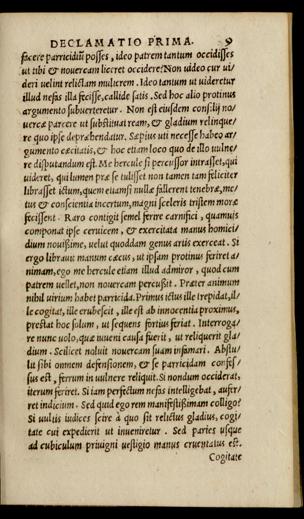 DECLAMATIO PRIMA. 9
facere parricidiū posses, ideo patrem tantum occidisses
ut tibi & nouercam liceret occidere? Non uideo cur ui/
deri uelint relictam mulierem. Ideo tantum ut uideretur
illud nefas illa fecisse, callide satis. Sed hoc alio protinus
argumento subuerteretur. Non est eiusdem consilij no/
uercæ parcere ut substituat ream, & gladium relinque/
re quo ipse depræhendatur. Sæpius uti necesse habeo ar/
gumento cæcitatis, & hoc etiam loco quo de illo uulne/
re disputandum est. Me hercule si percussor intrasset, qui
uideret, qui lumen præ se tulisset non tamen tam feliciter
librasset ictum, quem etiamsi nullæ fallerent tenebræ, me/
tus & conscientia incertum, magni sceleris tristem moræ
fecissent. Raro contigit semel ferire carnifici, quamuis
componat ipse ceruicem, & exercitata manus homici/
dium nouißime, uelut quoddam genus artis exerceat. Si
ergo librauit manum cæcus, ut ipsam protinus feriret a/
nimam, ego me hercule etiam illud admiror, quod cum
patrem uellet, non nouercam percußit. Præter animum
nihil uirium habet parricida. Primus ictus ille trepidat, il/
le cogitat, ille erubescit, ille est ab innocentia proximus,
præstat hoc solum, ut sequens fortius feriat. Interroga/
re nunc uolo, quæ iuueni causa fuerit, ut reliquerit gla
dium. Scilicet noluit nouercam suam infamari. Abstu/
lit sibi omnem defensionem, & se parricidam confes/
sus est, ferrum in uulnere reliquit. Si nondum occiderat,
iterum feriret. Si iam perfectum nefas intelligebat, aufer/
ret indicium. Sed quid ego rem manifestißimam colligo?
Si uultis iudices scire à quo sit relictus gladius, cogi/
tate cui expedierit ut inueniretur. Sed paries usque
ad cubiculum priuigni uestigio manus cruentatus est.
Cogitate